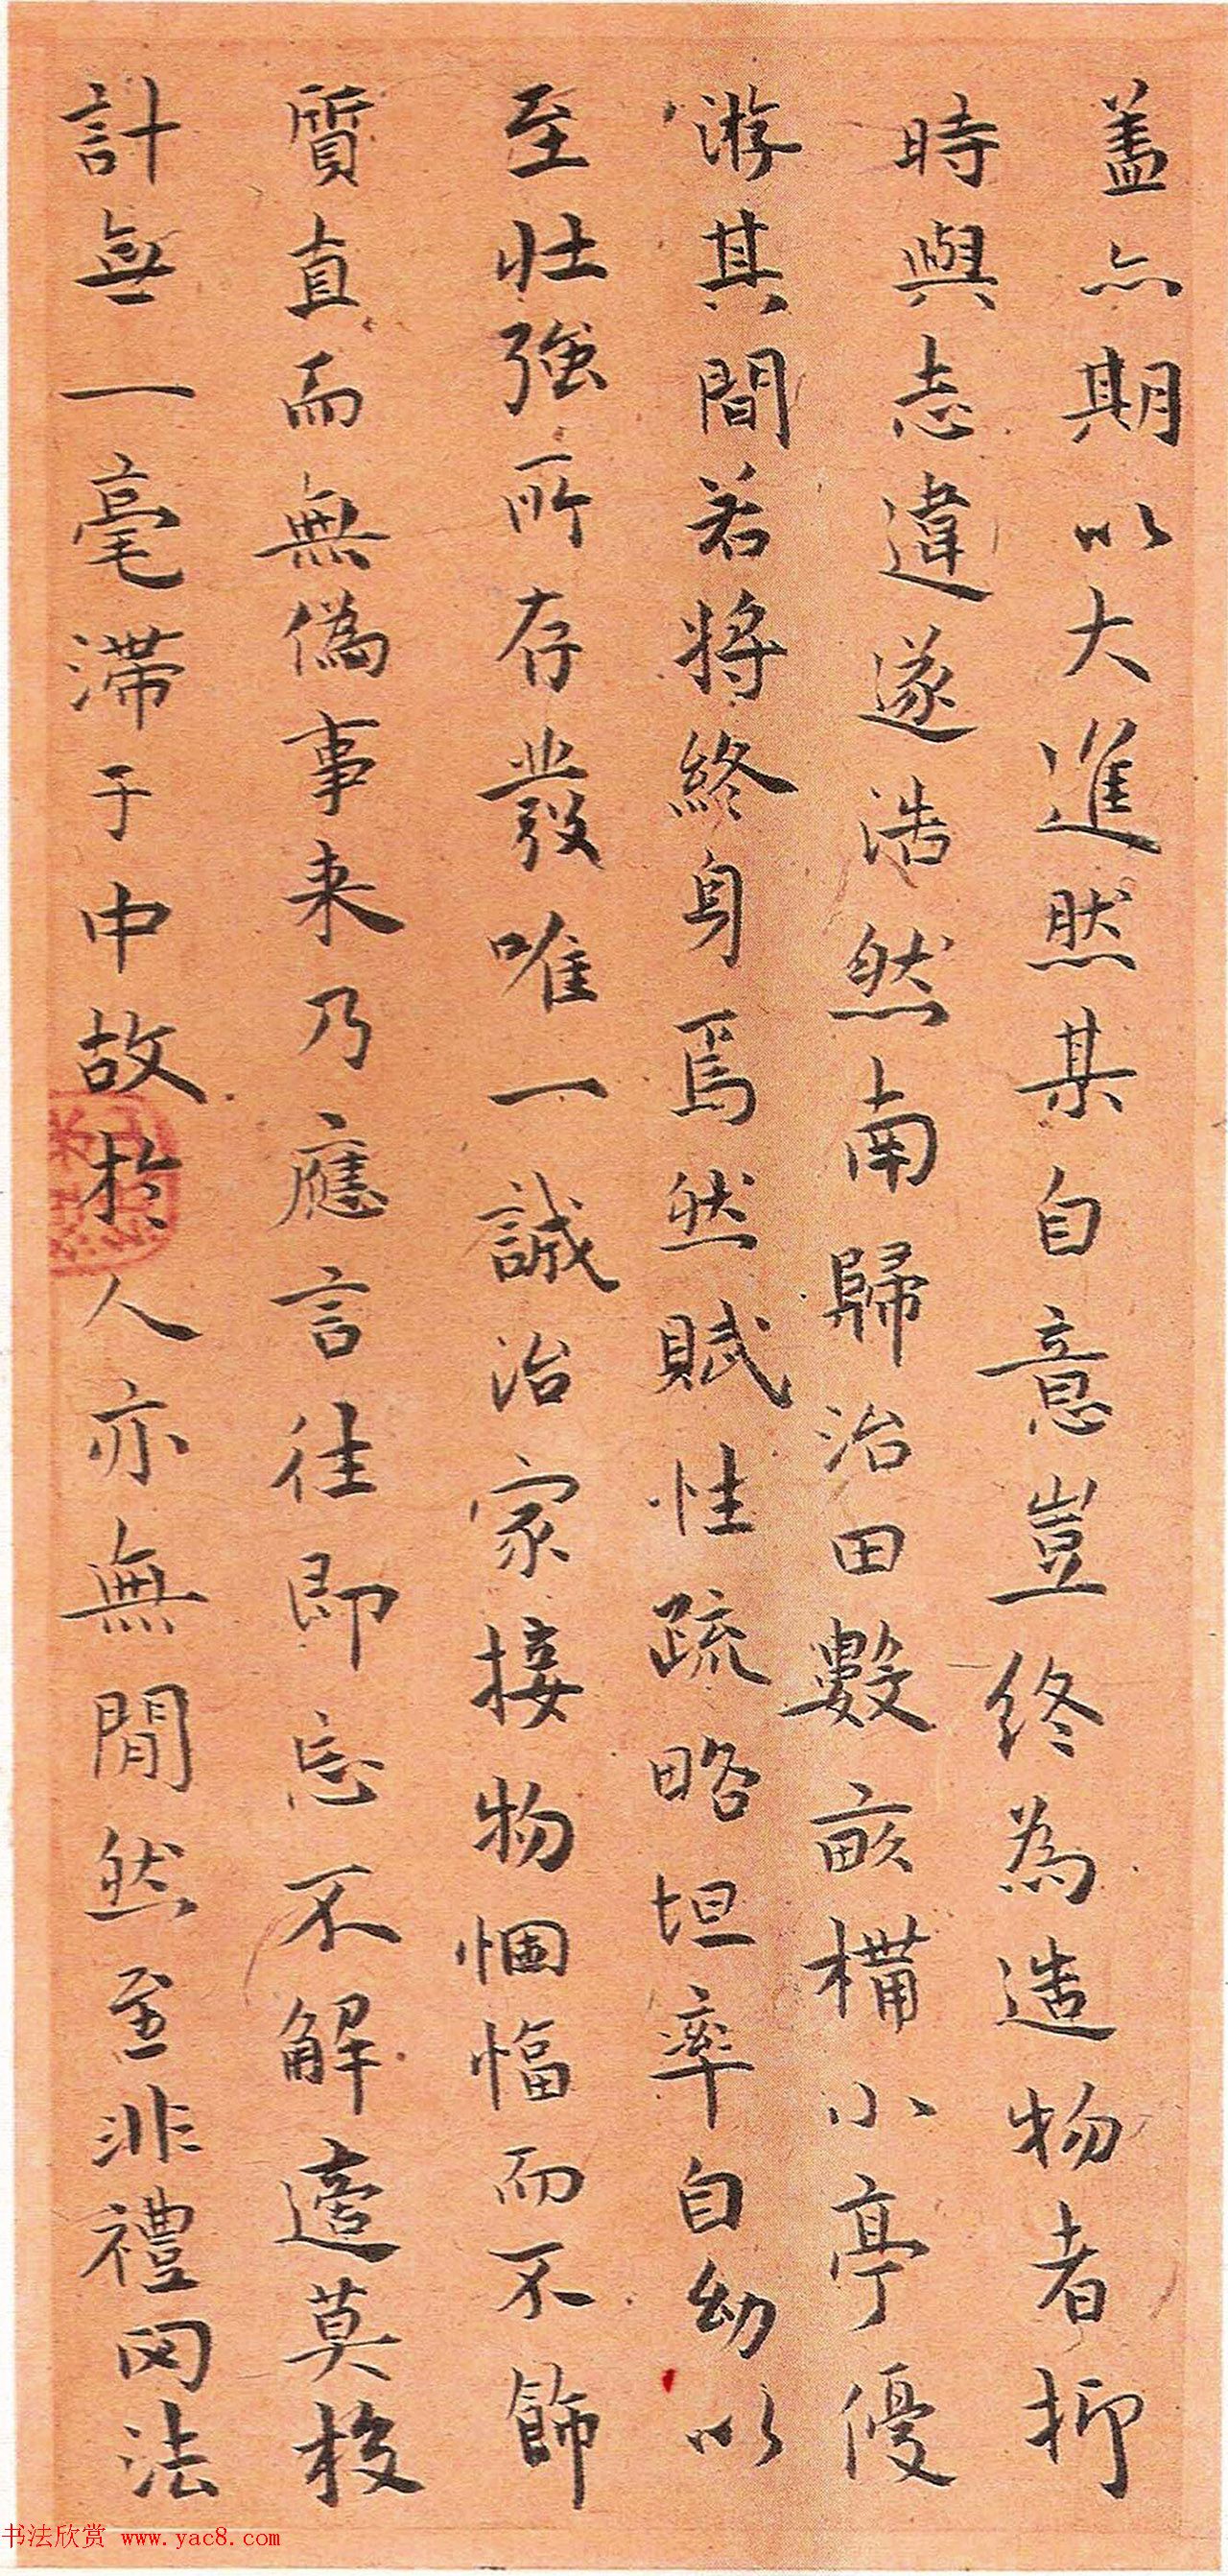 盖亦期以大進然某自意豈終為造物者抑
時與志違遂浩然南歸治田數畝構小亭優
游其間若將終身焉然賦性疏略坦率自幼以
至壮強所存發唯一誠治家接物悃愊而不飾
質直而無偽事来乃應言往即忘不解適莫校
計無一毫滞于中故於人亦無閒然至非禮罔法
书法欣赏 www.yac8.com